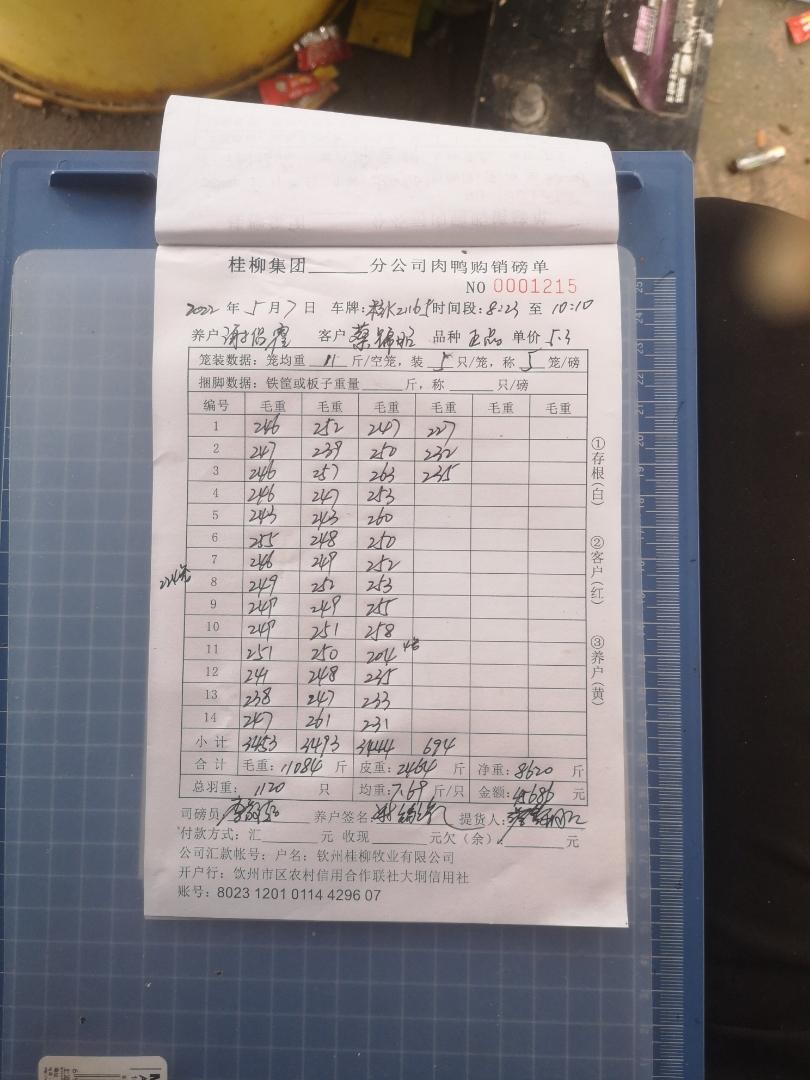 桂柳集团______分公司肉鸭购销磅单
NO 0001215
2022 年 5 月 7 日 车牌: 时间段: 8:23 至 10:10
养户 客户 蔡锦昭 品种 正品 单价 5.3
笼装数据: 笼均重 11 斤/空笼, 装 5 只/笼, 称 5 笼/磅
捆脚数据: 铁筐或板子重量______斤, 称______只/磅
编号 毛重 毛重 毛重 毛重 毛重 毛重
1 246 252 247 227
2 247 239 250 232
3 246 257 263 235
4 246 247 253
5 243 243 260
6 255 248 250
7 246 249 252
224笼
8 249 252 253
9 249 249 255
10 249 251 258
11 251 250 204 4笼
12 241 248 235
13 238 247 233
14 247 261 231
小计 3453 3493 3444 694
合计 毛重: 11084 斤 皮重: 2464 斤 净重: 8620 斤
总羽重: 1120 只 均重: 7.69 斤/只 金额: 45686 元
司磅员: 养户签名: 提货人:
付款方式: 汇______元 收现______元欠(余)______元
公司汇款帐号: 户名: 钦州桂柳牧业有限公司
开户行: 钦州市区农村信用合作联社大垌信用社
账号: 8023 1201 0114 4296 07
①存根(白)
②客户(红)
③养户(黄)